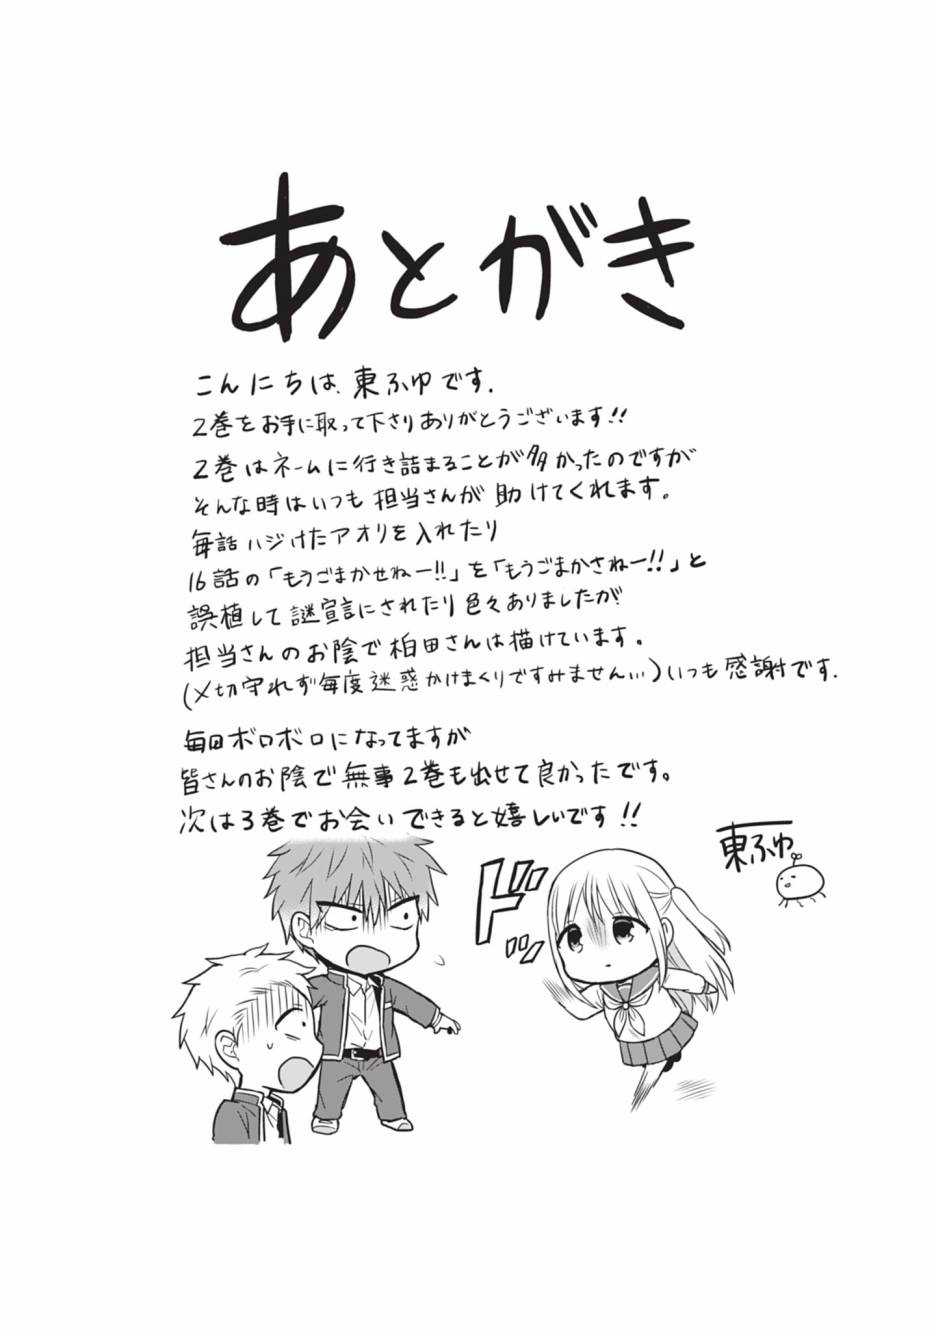 あとがき
こんにちは、東ふゆです.
2巻をお手に取って下さりありがとうございます!!
2巻はネームに行き詰まることが多かったのですが
そんな時はいつも担当さんが助けてくれます。
毎話ハジけたアオリを入れたり
16話の「もうごまかせねー!!」を「もうごまかさねー!!」と
誤植して謎宣言にされたり色々ありましたが
担当さんのお陰で柏田さんは描けています。
(〆切守れず毎度迷惑かけまくりですみません…)いつも感謝です.
毎回ボロボロになってますが
皆さんのお陰で無事2巻も出せて良かったです。
次は3巻でお会いできると嬉しいです!!
東ふゆ
ドドドド